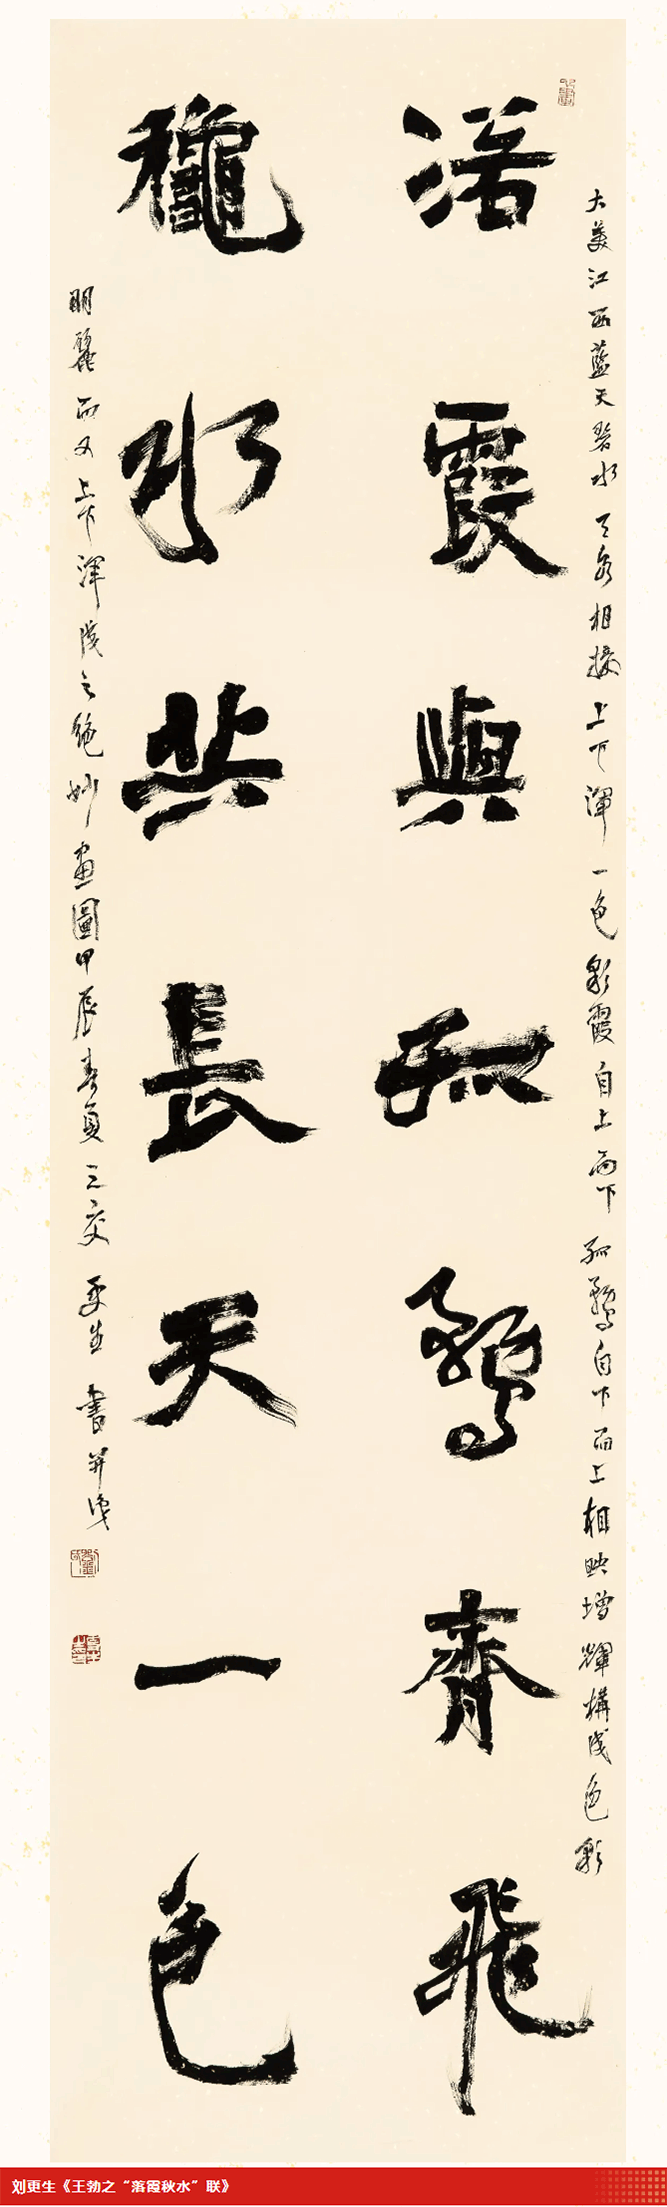 大美江西藍天碧水天相接上下渾一色彩霞自上而下孤鶩自下而上相映增輝構成色彩
落霞與孤鶩齊飛
龝水共長天一色
明麗而又上下渾成之絕妙畫圖甲辰春夏之交更生書并識
刘更生《王勃之“落霞秋水”联》